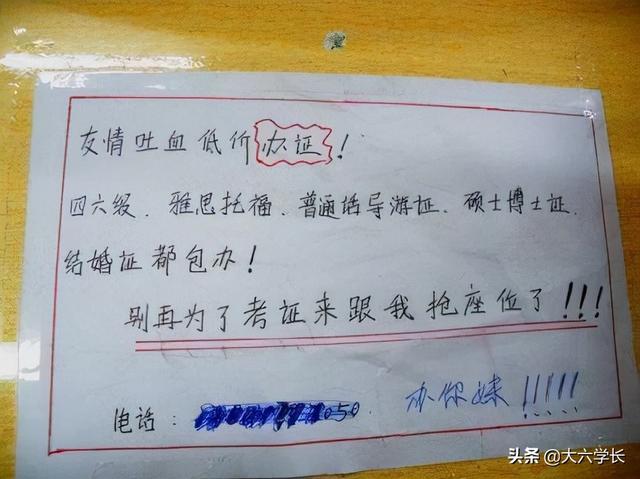 友情吐血低价办证！
四六级、雅思托福、普通话导游证、硕士博士证、
结婚证都包办！
别再为了考证来跟我抢座位了！！！
电话：050
办你妹！！！！！
头条 @大六学长